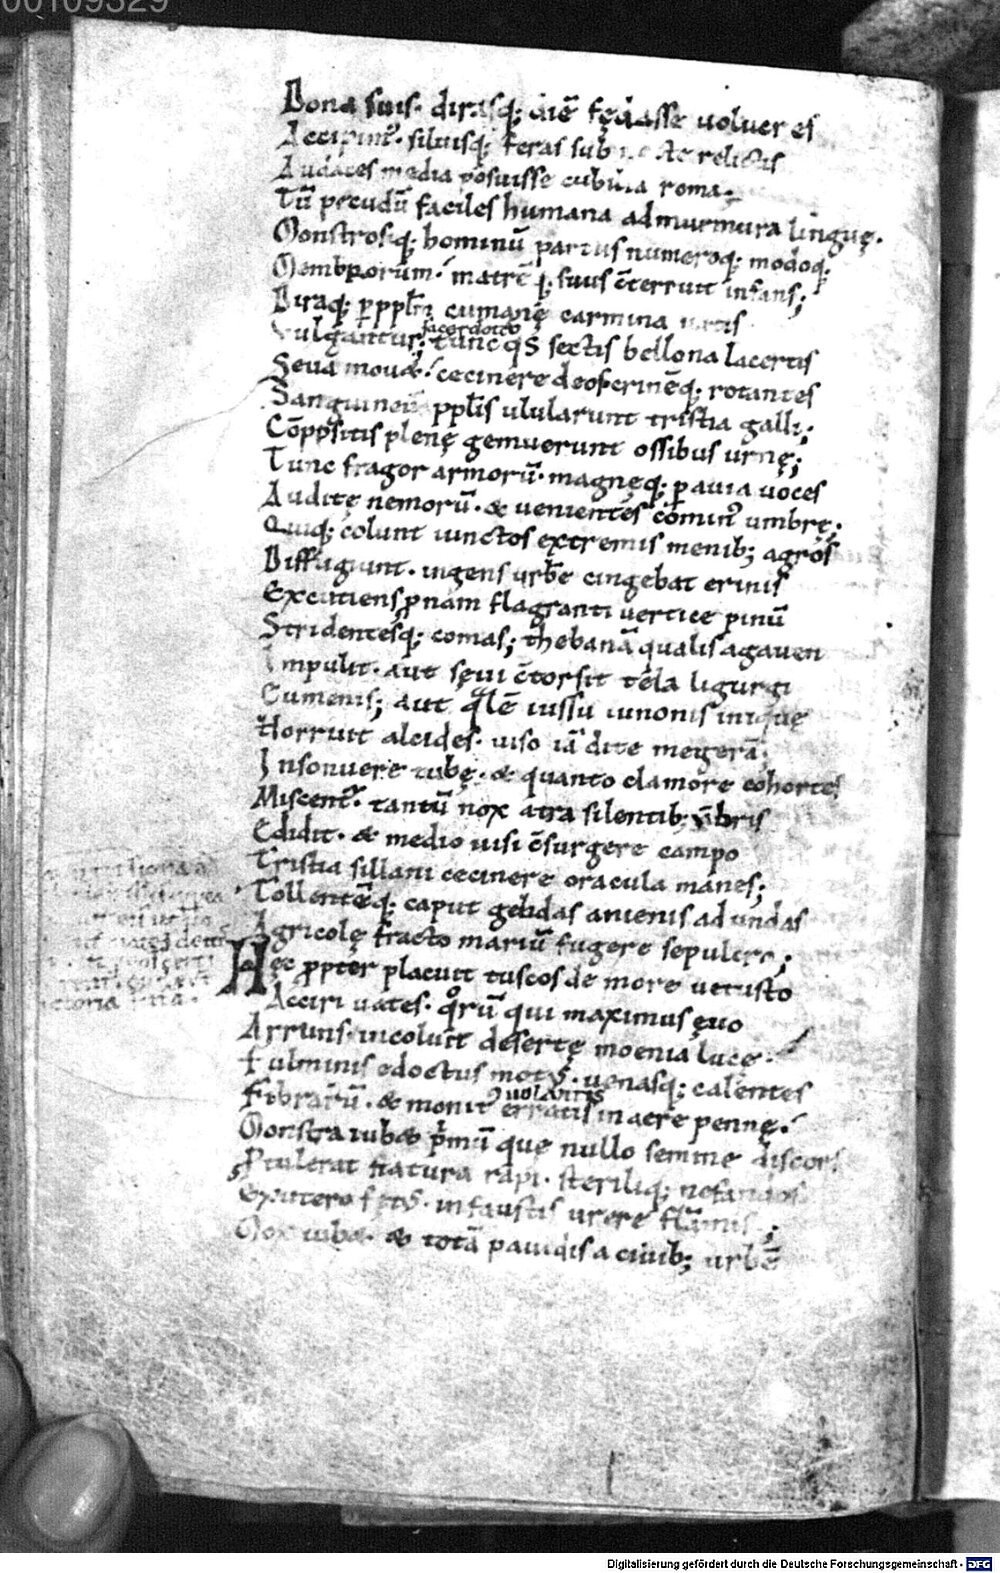 00109329
Dona suis. dirasq; diē fędasse uolucres
Accipim᷒. siluisq; feras sub nocte relictis
Audaces media posuisse cubilia roma.
Tū pecudū faciles humana admurmura linguę.
Monstrosiq; hominū partus numeroq; modoq;
Membrorum. matrē q; suus c̄terruit infans;
Diraq; ꝑ ppl̄m cumanę carmina uatis
Vulgantur; tunc q᷒s sectis bellona lacertis
sacerdotes
Seua mouet. cecinere deos. crinēq; rotantes
Sanguineū ppl̄is ulularunt tristia galli;
Cōppositis plenę gemuerunt ossibus urnę;
Tunc fragor armorū. magnęq; ꝑ auia uoces
Auditę nemorū. & uenientes comin᷒ umbrę.
Quiq; colunt iunctos extremis menib; agros
Diffugiunt. ingens urbē cingebat erinis
Excutiens ꝓnam flagranti uertice pinū
Stridentesq; comas; thebanā qualis agauen
Impulit. aut sęui c̄torsit tela ligurgi
Eumenis; aut qᵃlē iussu iunonis iniquę
Horruit alcides. uiso iā dite megerā;
Insonuere tubę. & quanto clamore cohortes
Miscent᷒. tantū nox atra silentib; ūbris
Edidit. & medio uisi c̄surgere campo
Tristia sillani cecinere oracula manes;
Tollentēq; caput gelidas anienis ad undas
Agricolę fracto mariū fugere sepulcro;
Hęc ꝓpter placuit tuscos de more uetusto
Acciri uates. qᵒrū qui maximus ęuo
Arruns. incoluit desertę moenia lucę.
Fulminis edoctus mot᷒. uenasq; calentes
Fibrarū. & monit᷒ erratis in aere pennę.
uolantis
Monstra iubet p̄mū que nullo semine discors
Ptulerat natura rapi. steriliq; nefandos
Ex utero fet᷒. infaustis urere flāmis;
Mox iubet. & totā pauidis a ciuib; urbē
Digitalisierung gefördert durch die Deutsche Forschungsgemeinschaft - DFG